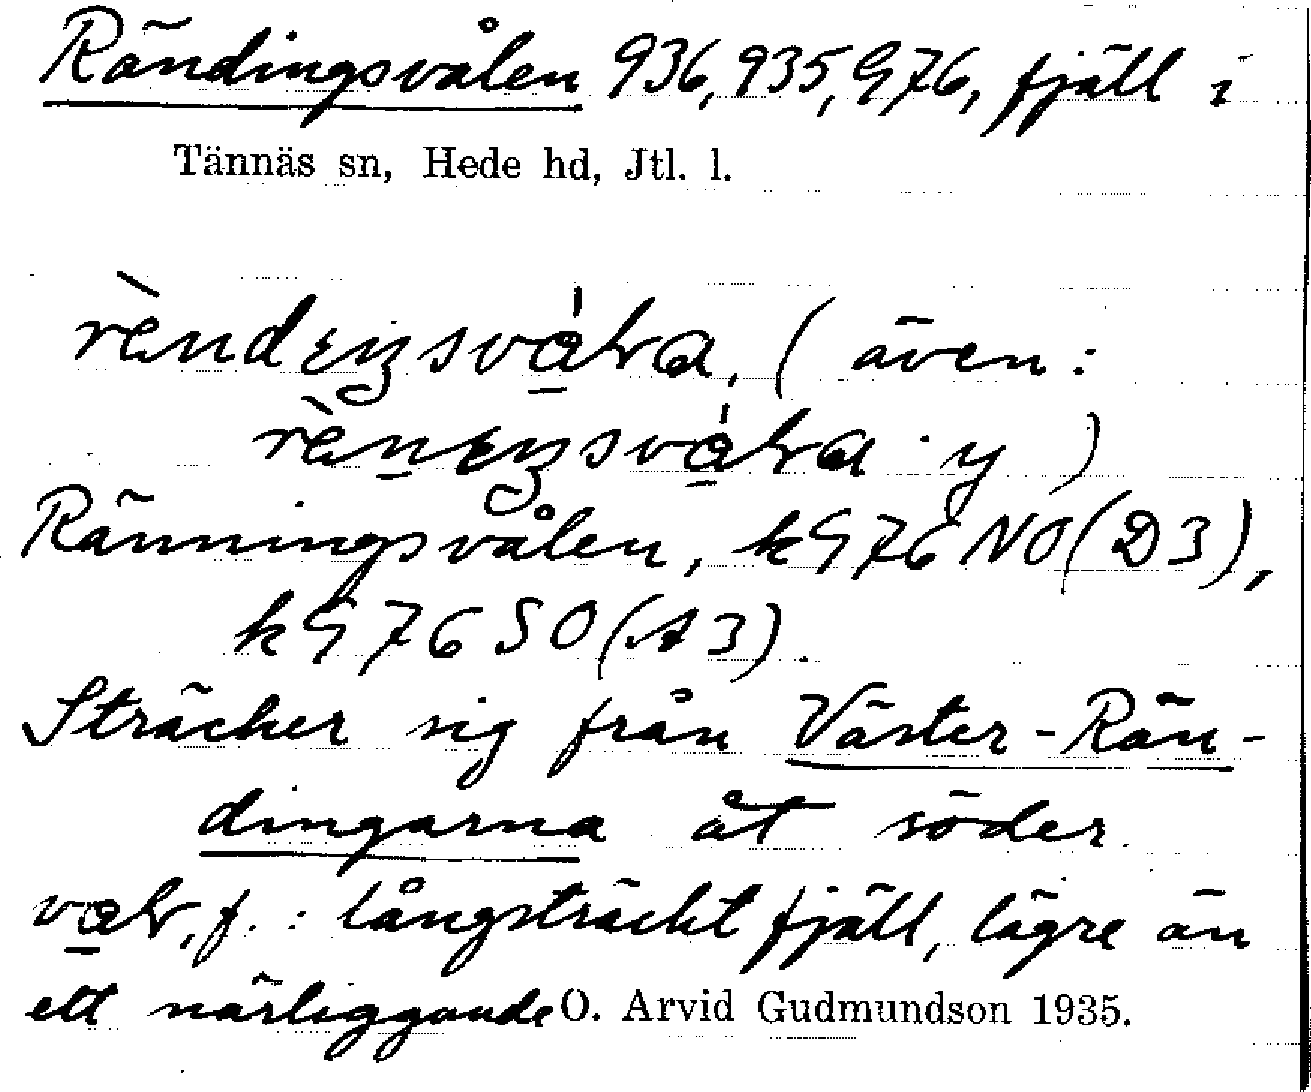 Rändingsvålen 936, 935, G76, fjäll i
Tännäs sn, Hede hd, Jtl. l.
(även:
y)
Ränningsvålen, kG76NO(D3),
kG76SO(A3).
Sträcker sig från Väster-Rän-
dingarna åt söder.
f.: långsträckt fjäll, lägre än
ett närliggande O. Arvid Gudmundson 1935.